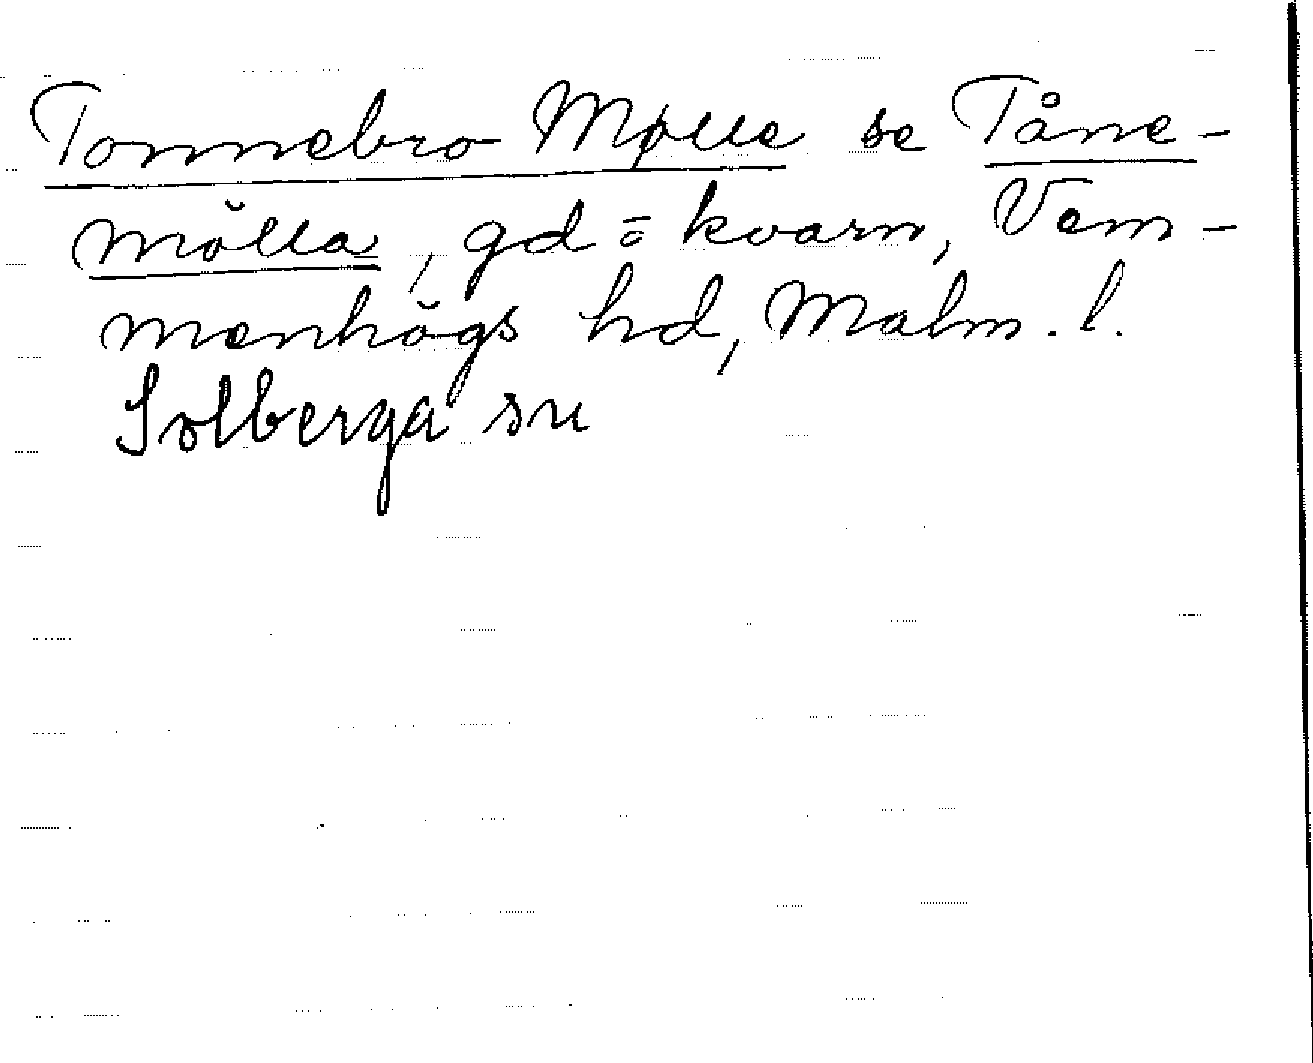 Tonnebro Mølle se Tåne-
mölla, gd o kvarn, Vem-
menhögs hd, Malm. l.
Solberga sn